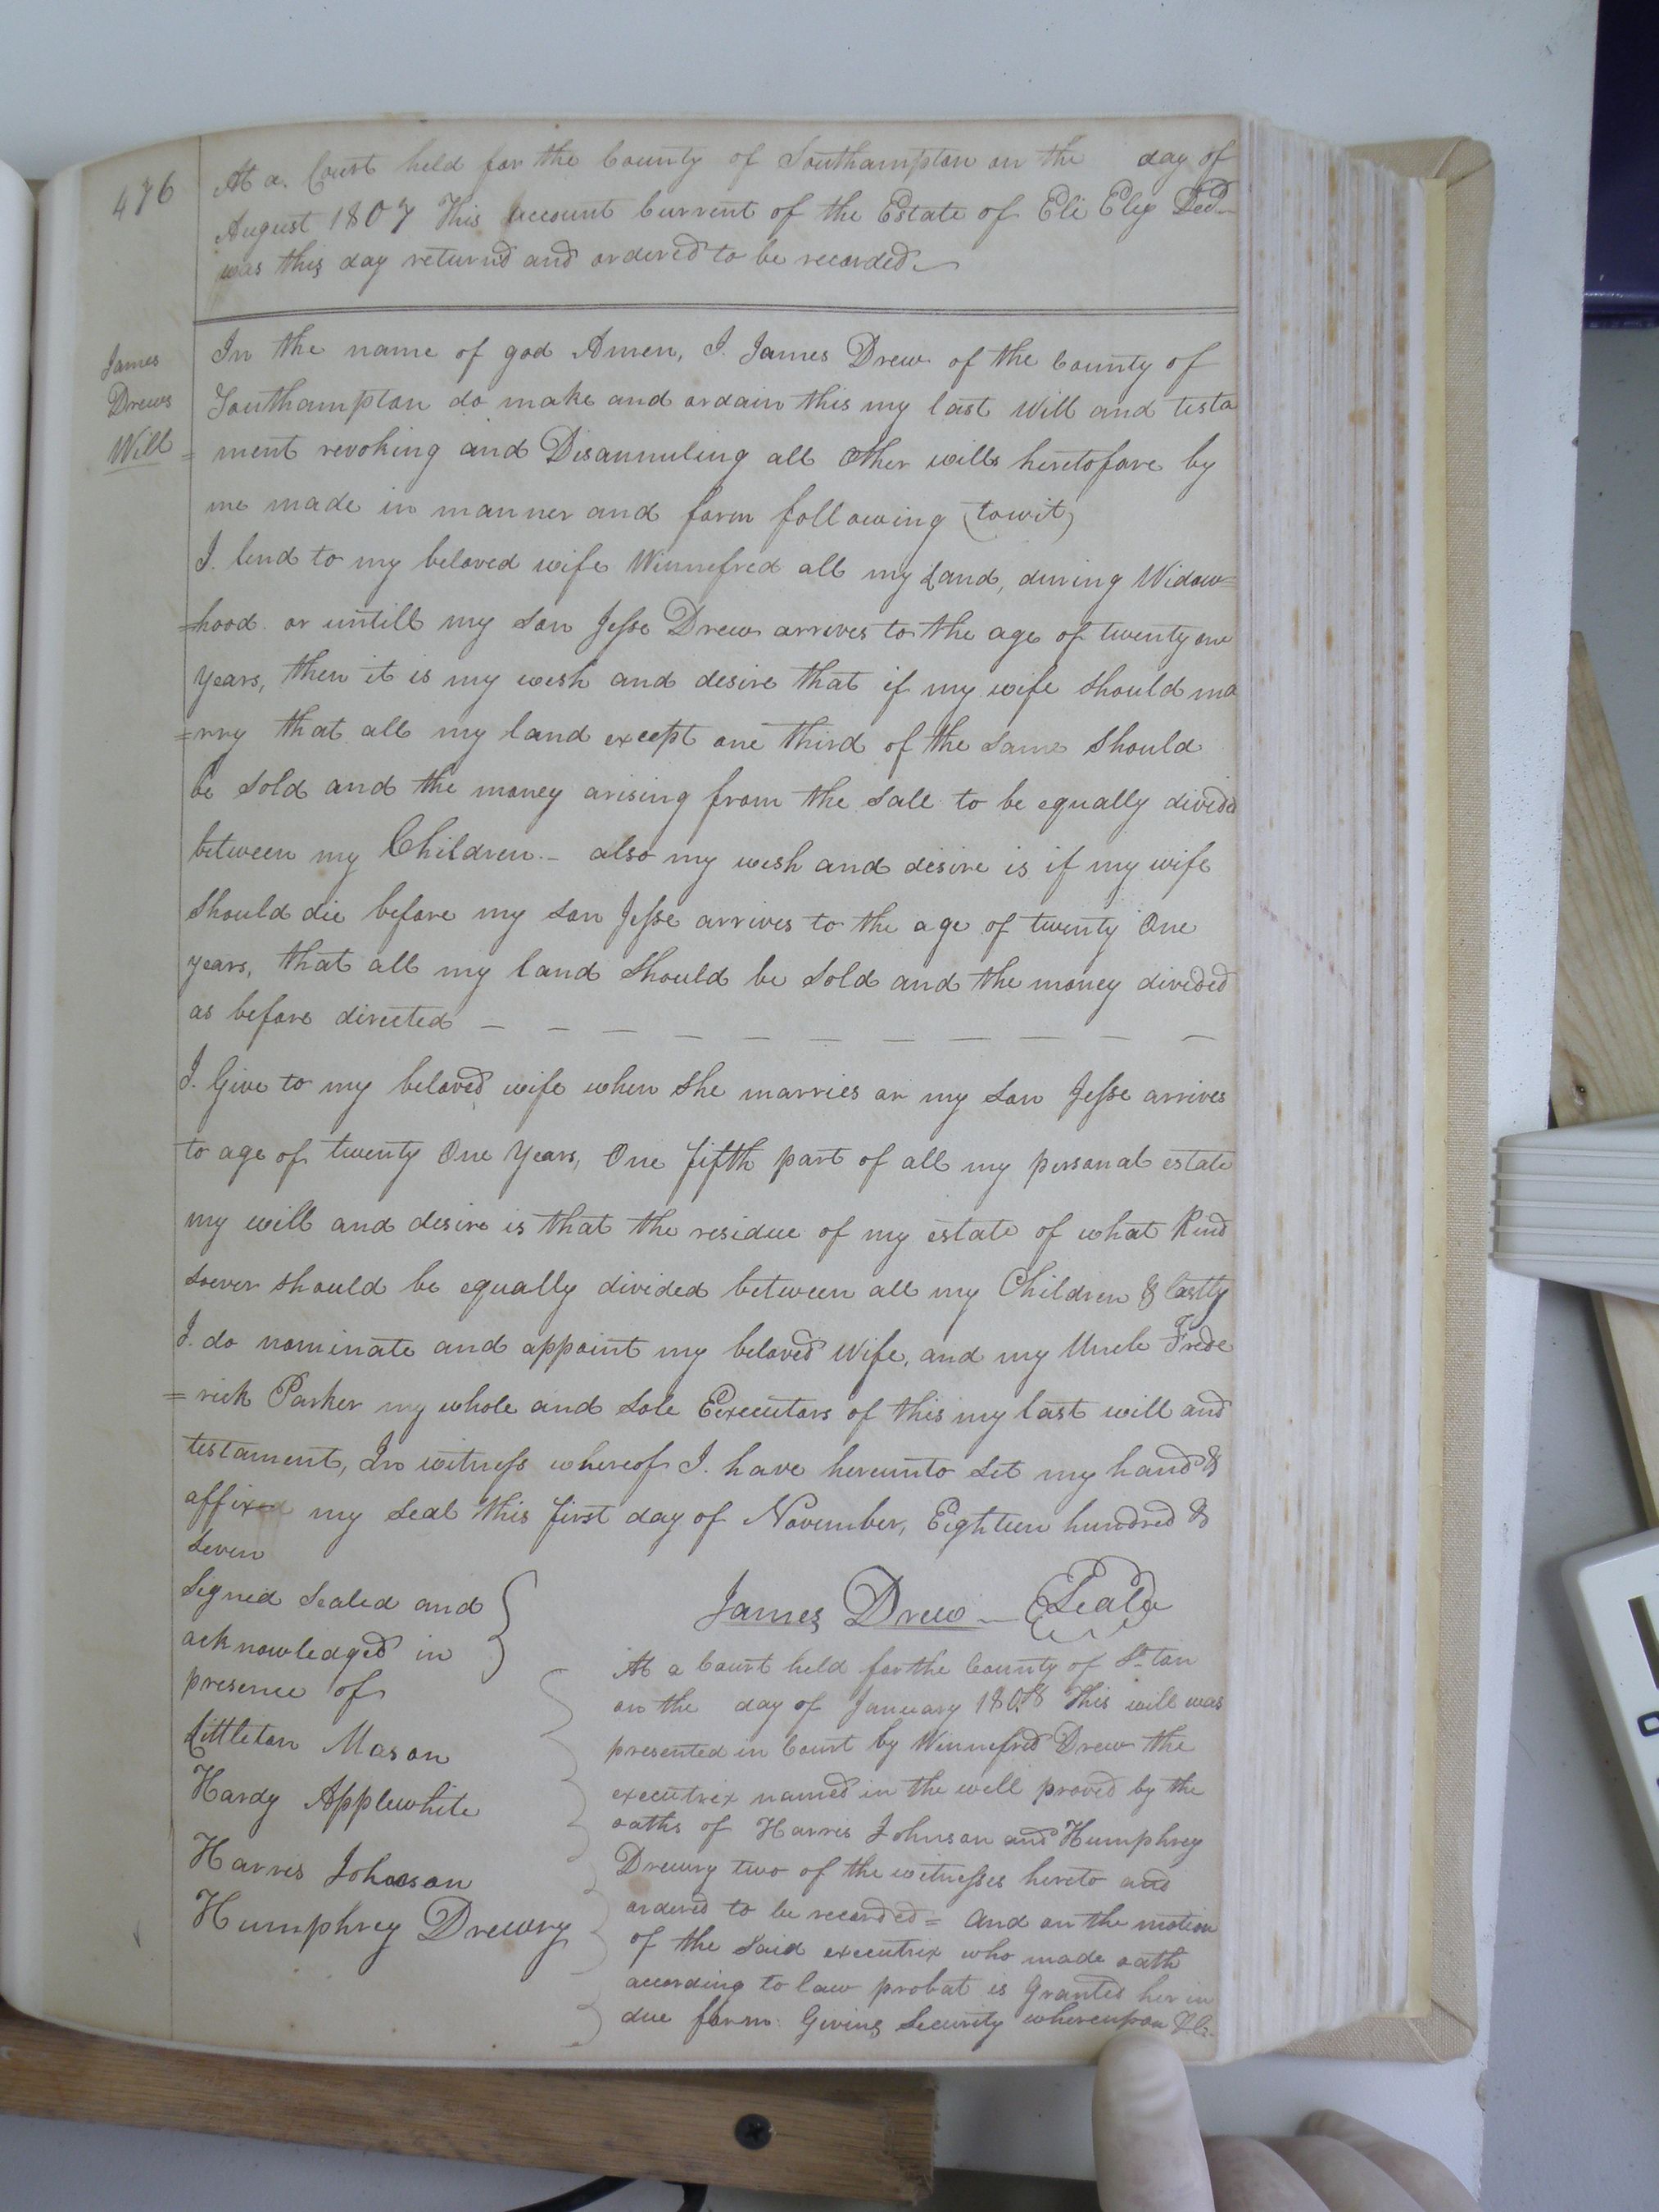 476
At a Court held for the County of Southampton on the day of
August 1807 This account Current of the Estate of Eli Eley Decd
was this day returnd and ordered to be recorded
James
Drews
Will
In the name of god Amen, I. James Drew of the County of
Southampton do make and ordain this my last Will and testa
= ment revoking and Disannuling all Other wills heretofore by
me made in manner and form following (towit)
I. lend to my beloved wife Winnefred all my Land, during Widow=
=hood or untill my son Jesse Drew arrives to the age of twenty one
years, then it is my wish and desire that if my wife should ma
=rry that all my land except one third of the same should
be sold and the money arising from the sale to be equally divided
between my Children. – also my wish and desire is if my wife
should die before my son Jesse arrives to the age of twenty One
years, that all my land should be sold and the money divided
as before directed — — — — — — — — — — —
I. Give to my beloved wife when she marries or my son Jesse arrives
to age of twenty One Years, One fifth part of all my personal estate
my will and desire is that the residue of my estate of what Kind
soever should be equally divided between all my Children & lastly
I. do nominate and appoint my beloved Wife, and my Uncle Frede
= rick Parker my whole and sole Executors of this my last will and
testament, In witness whereof I. have hereunto set my hand &
affixed my seal this first day of November, Eighteen hundred &
seven
James Drew — Seal
Signed sealed and
acknowledged in
presence of
Littleton Mason
Hardy Applewhite
Harris Johnson
Humphrey Drewry
At a Court held for the County of So. ton
on the day of January 1808 This will was
presented in Court by Winnefred Drew the
executrix named in the will proved by the
oaths of Harris Johnson and Humphrey
Drewry two of the witnesses hereto and
ordered to be recorded = And on the motion
of the said executrix who made oath
according to law probat is Granted her in
due form Giving Security whereupon &c.